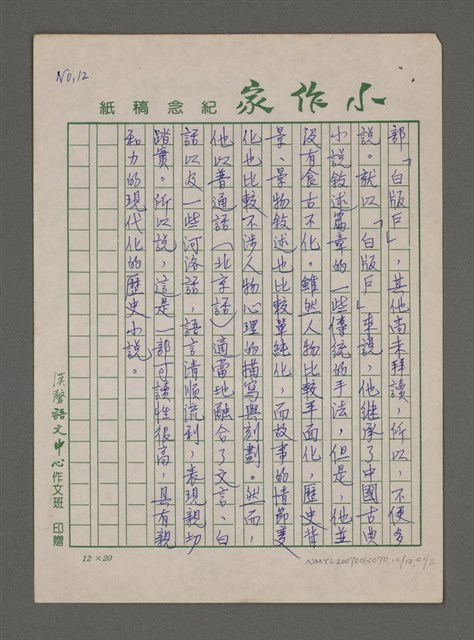 No,12
小作家
紀念稿紙
部「白版戶」，其他尚未拜讀，所以，不便多
說。就以「白版戶」來說，他繼承了中國古典
小說敘述篇章的一些傳統的手法，但是，他並
沒有食古不化。雖然人物比較平面化，歷史背
景、景物敘述也比較單純化，而故事的情節變
化也比較不涉人物心理的描寫與刻劃。然而，
他以普通話（北京話）適當地融合了文言、白
話以及一些河洛話，語言清順流利，表現親切
踏實。所以說，這是一部可讀性很高，具有親
和力的現代化的歷史小說。
漢聲語文中心作文班 印贈
12×20